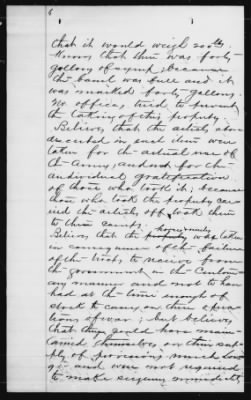 6
that it would weigh 200 lbs
knows that there was forty
gallons of syrup, because
the barrel was full and it
was marked forty gallons.
No officer tried to prevent
the taking of this property.
Believes that the articles above
described in each item were
taken for the actual use of
the Army, and not for the
individual gratification
of those who took it; because
those who took the property car-
ried the articles off took them
to their camps.
Believes that the property was taken
in consequence of the failure
of the troops to receive from
the government in the
any manner and not to have
had at the time enough of
stock to carry on their opera-
tions of war; but believes
that they could have main-
tained themselves on their sup-
ply of provisions much lon-
ger and were not required
to make seizure immediately